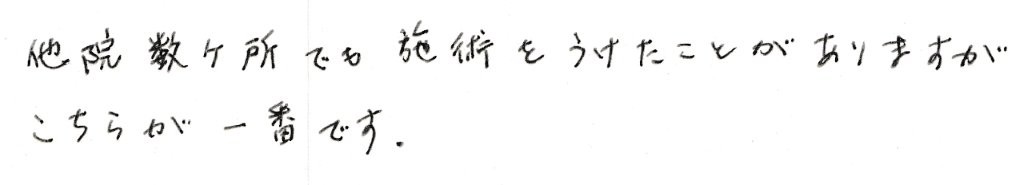 他院数ケ所でも施術をうけたことがありますが
こちらが一番です.